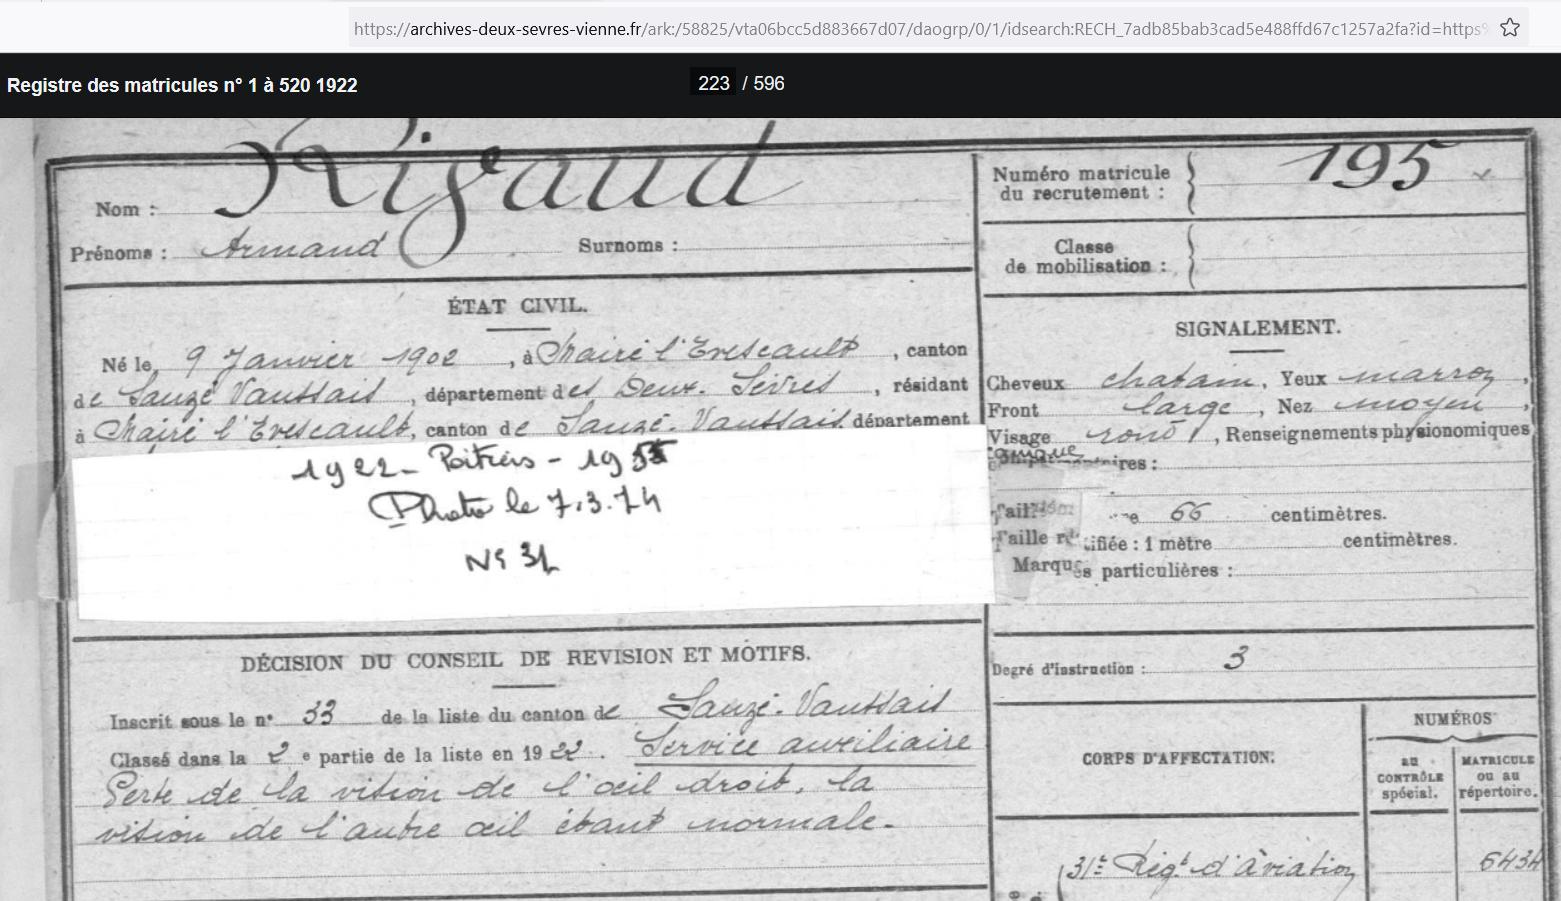 https://archives-deux-sevres-vienne.fr/ark:/58825/vta06bcc5d883667d07/daogrp/0/1/idsearch:RECH_7adb85bab3cad5e488ffd67c1257a2fa?id=https%
Registre des matricules n° 1 à 520 1922
223 / 596
Nom : Rigaud
Prénoms : Armand Surnoms :
Numéro matricule
du recrutement : 195
Classe
de mobilisation :
ÉTAT CIVIL.
Né le 9 Janvier 1902, à Mairé l'Evescault, canton
de Sauzé Vaussais, département des Deux-Sèvres, résidant
à Mairé l'Evescault, canton de Sauzé-Vaussais département
1922 - Poitiers - 195
Photo le 7.3.74
N° 31
SIGNALEMENT.
Cheveux chatain, Yeux marron,
Front large, Nez moyen,
Visage rond, Renseignements physionomiques
ires :
Taille 66 centimètres.
Taille rectifiée : 1 mètre centimètres.
Marques particulières :
Degré d'instruction : 3
DÉCISION DU CONSEIL DE REVISION ET MOTIFS.
Inscrit sous le n° 33 de la liste du canton de Sauzé-Vaussais
Classé dans la 2e partie de la liste en 1922. Service auxiliaire
Perte de la vision de l'œil droit, la
vision de l'autre œil étant normale.
CORPS D'AFFECTATION.
NUMÉROS
au
CONTRÔLE
spécial.
MATRICULE
ou au
répertoire.
31e Régt d'Aviation 6434